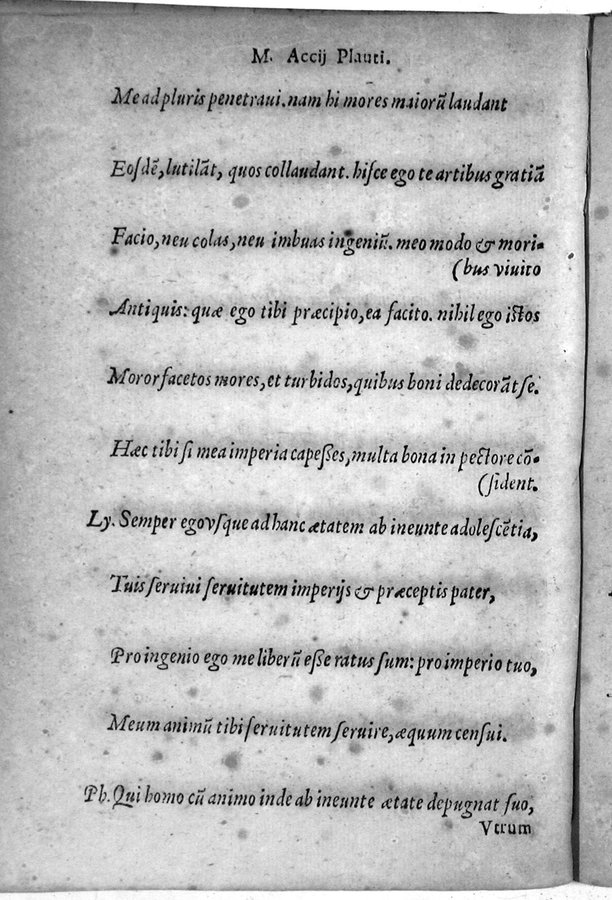 M. Accij Plauti.
Me ad pluris penetraui. nam hi mores maiorũ laudant
Eosdẽ, lutilãt, quos collaudant. hisce ego te artibus gratiã
Facio, neu colas, neu imbuas ingeniũ. meo modo & mori-
(bus viuito
Antiquis: quæ ego tibi præcipio, ea facito. nihil ego istos
Moror facetos mores, et turbidos, quibus boni dedecorãt se.
Hæc tibi si mea imperia capesses, multa bona in pectore cõ-
(sident.
Ly. Semper ego vsque ad hanc ætatem ab ineunte adolescẽtia,
Tuis seruiui seruitutem imperijs & præceptis pater,
Pro ingenio ego me liberũ esse ratus sum: pro imperio tuo,
Meum animũ tibi seruitutem seruire, æquum censui.
Ph. Qui homo cũ animo inde ab ineunte ætate depugnat suo,
Vtrum